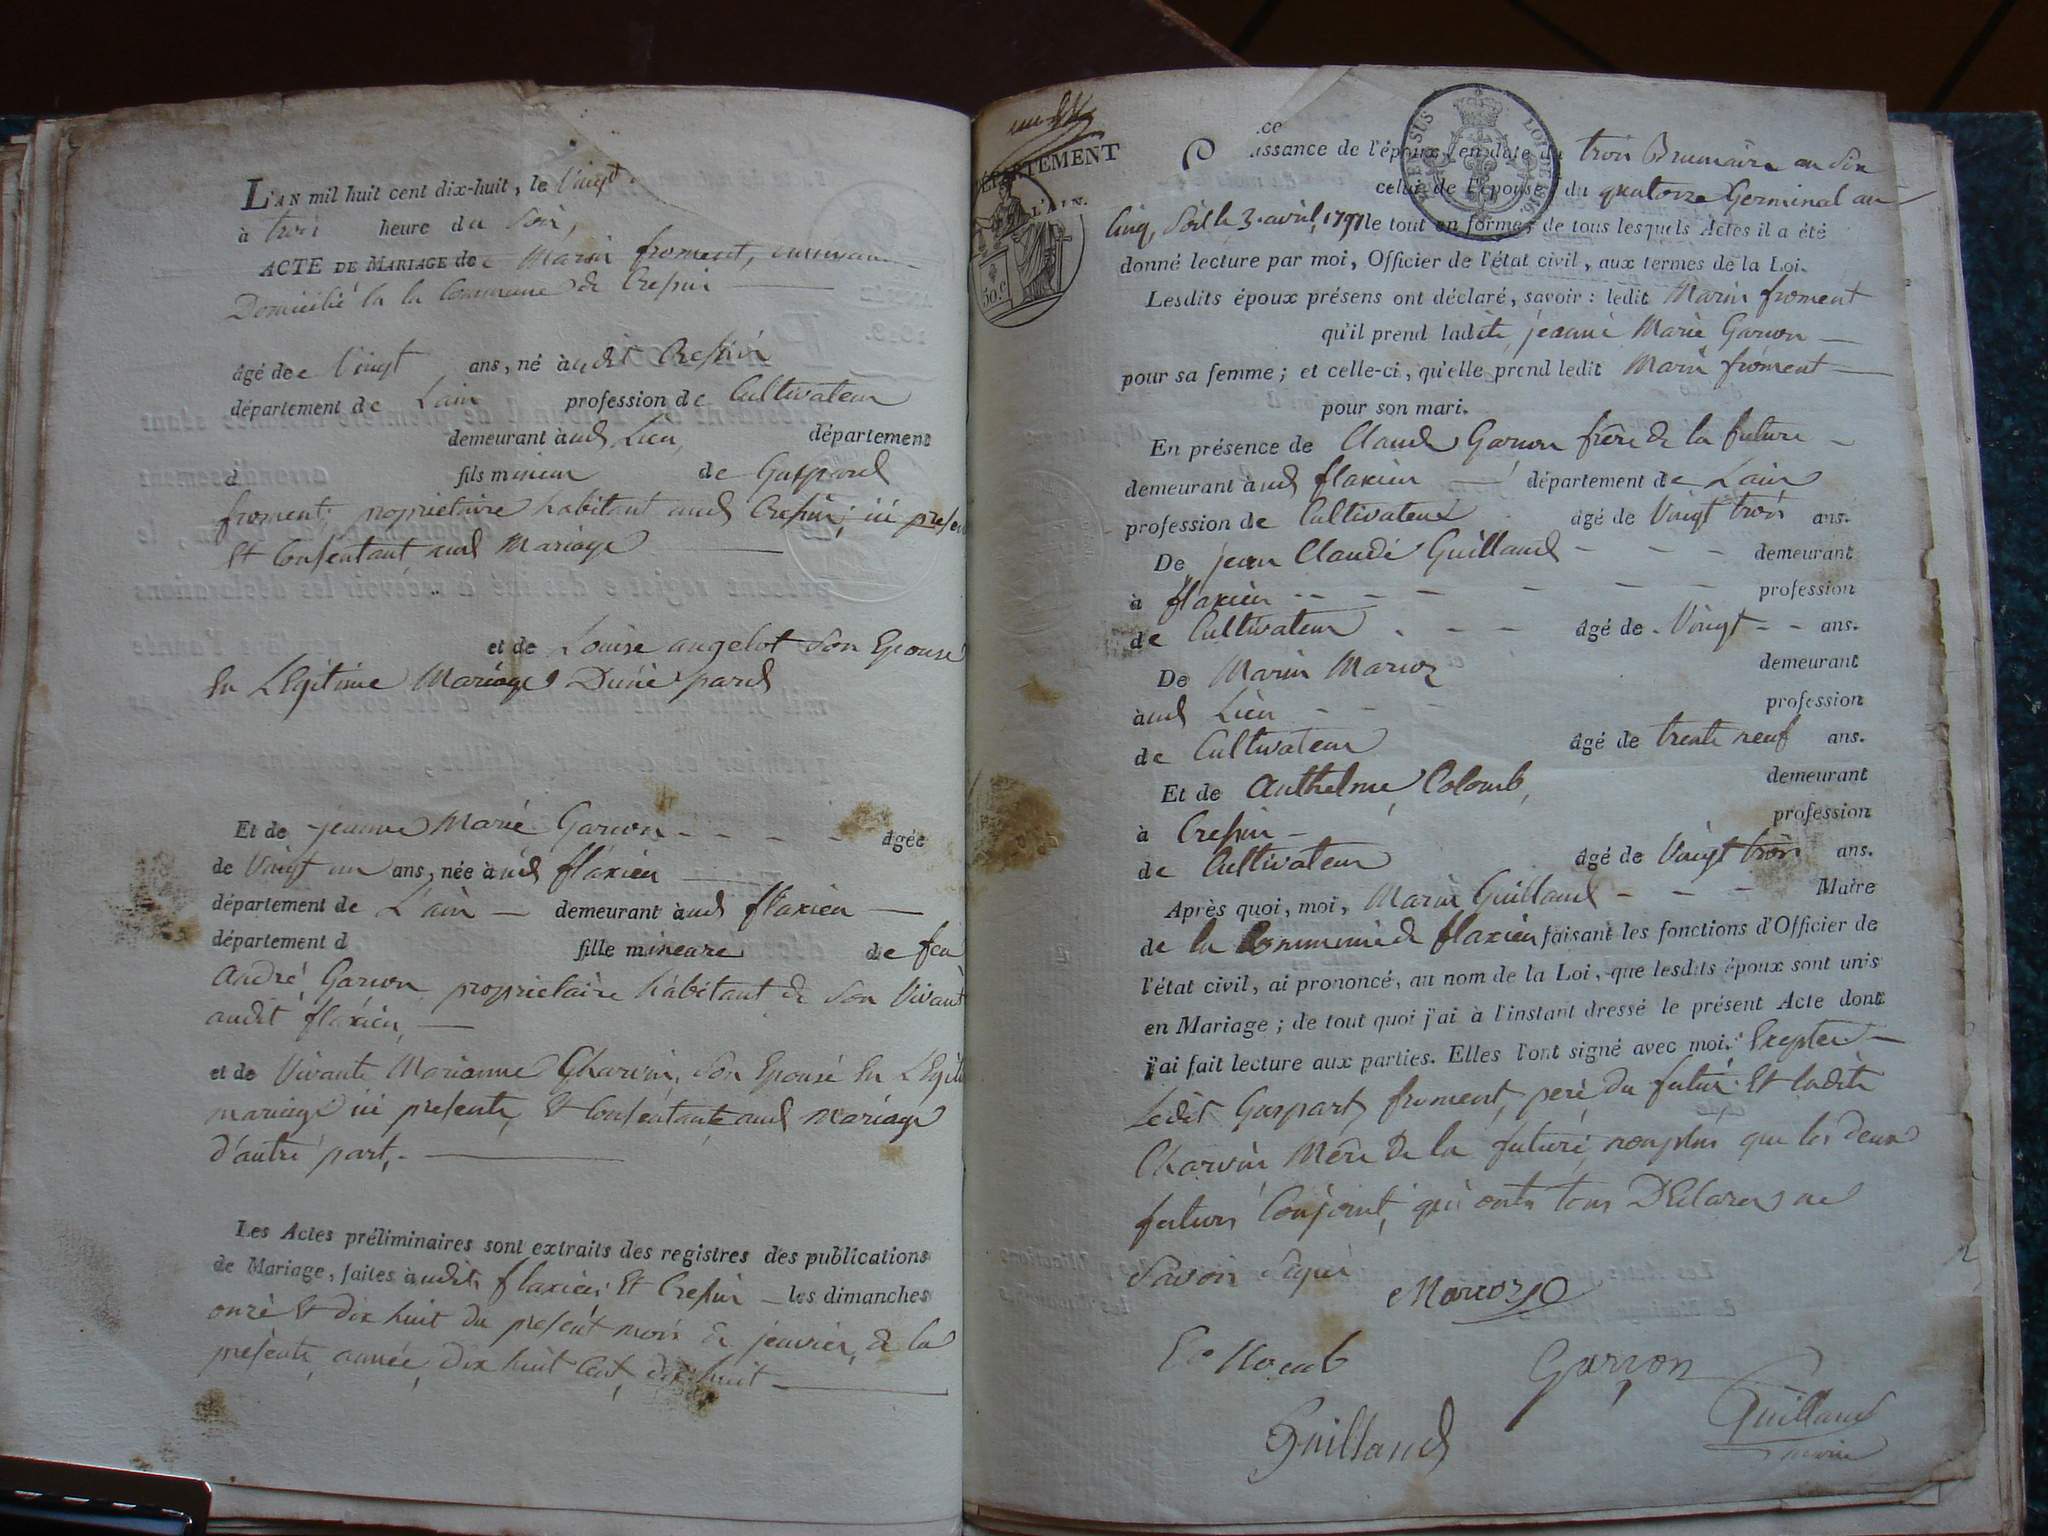 L'AN mil huit cent dix-huit, le Vingt
à trois heure du Soir,
ACTE DE MARIAGE de Marin froment,
Domicilié la la Commune de Crespin
âgé de Vingt ans, né àudit Crespin
département de Lain profession de Cultivateur
demeurant àud Lieu, département
d fils mineur de Gaspard
froment, propriétaire habitant aud Crespin, ici present
Et Consentant aud Mariage
et de Louise angelot Son Epouse
En Légitime Mariage D'une part
Et de jeanne Marie Garion - - - - âgée
de Vingt un ans, née àud flaxieu
département de L'ain demeurant àud flaxieu
département d fille mineure de feu
André Garion propriétaire habitant de Son Vivant
audit flaxieu,
et de Vivante Marianne Charvin, Son Epouse En Légiti
mariage ici presente, Et Consentante aud Mariage
d'autre part.
Les Actes préliminaires sont extraits des registres des publications
de Mariage, faites àudit flaxieu Et Crespin les dimanches
onze Et dix huit du present mois de janvier, de la
presente année, dix huit Cent dix huit
DÉPARTEMENT
L'AIN.
50.c
VERSUS
LOI DE 1816.
issance de l'époux, en date du trois Brumaire an Six
celui de l'épouse, du quatorze Germinal an
Cinq, Soit le 3. avril, 1797 le tout en formes de tous lesquels Actes il a été
donné lecture par moi, Officier de l'état civil, aux termes de la Loi.
Lesdits époux présens ont déclaré, savoir : ledit Marin froment
qu'il prend ladite jeanne Marie Garion
pour sa femme ; et celle-ci, qu'elle prend ledit Marin froment
pour son mari.
En présence de Claude Garion frère de la future
demeurant àud flaxieu département de Lain
profession de Cultivateur âgé de Vingt trois ans.
De jean Claude Guilland - - - demeurant
à flaxieu - - - - - - profession
de Cultivateur - - - âgé de Vingt - - ans.
De Marin Marioz demeurant
àud Lieu - - - profession
de Cultivateur âgé de trente neuf ans.
Et de Anthelme Colomb, demeurant
à Crespin - profession
de Cultivateur âgé de Vingt trois ans.
Après quoi, moi, Marin Guilland - - - Maire
de la Commune de flaxieu faisant les fonctions d'Officier de
l'état civil, ai prononcé, au nom de la Loi, que lesdits époux sont unis
en Mariage ; de tout quoi j'ai à l'instant dressé le présent Acte dont
j'ai fait lecture aux parties. Elles l'ont signé avec moi. Excpter
Ledit Gaspart froment, père du futur Et ladite
Charvin Mère de la future, nonplus que les deux
futurs Conjoint, qui onts tous Déclarer ne
Savoir Signer
Marioz
Collomb
Garion
Guilland
Guilland
maire